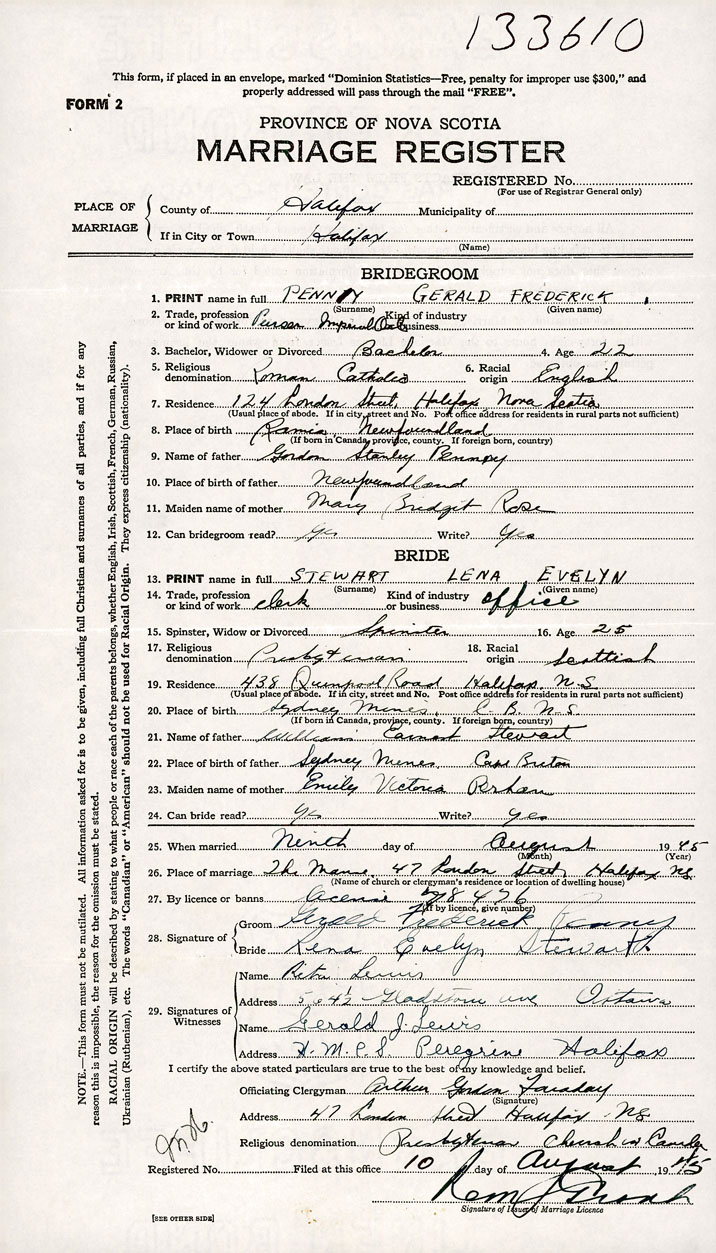 133610
This form, if placed in an envelope, marked "Dominion Statistics—Free, penalty for improper use $300," and
properly addressed will pass through the mail "FREE".
FORM 2
PROVINCE OF NOVA SCOTIA
MARRIAGE REGISTER
REGISTERED No.
(For use of Registrar General only)
PLACE OF MARRIAGE
County of Halifax Municipality of
If in City or Town Halifax
(Name)
BRIDEGROOM
1. PRINT name in full PENNY GERALD FREDERICK
(Surname) (Given name)
2. Trade, profession or kind of work Purser Imperial Oil Kind of industry or business
3. Bachelor, Widower or Divorced Bachelor 4. Age 22
5. Religious denomination Roman Catholic 6. Racial origin English
7. Residence 124 London Street, Halifax Nova Scotia
(Usual place of abode. If in city, street and No. Post office address for residents in rural parts not sufficient)
8. Place of birth Ramea Newfoundland
(If born in Canada, province, county. If foreign born, country)
9. Name of father Gordon Stanley Penney
10. Place of birth of father Newfoundland
11. Maiden name of mother Mary Bridget Rose
12. Can bridegroom read? Yes Write? Yes
BRIDE
13. PRINT name in full STEWART LENA EVELYN
(Surname) (Given name)
14. Trade, profession or kind of work clerk Kind of industry or business office
15. Spinster, Widow or Divorced Spinster 16. Age 25
17. Religious denomination Presbyterian 18. Racial origin Scottish
19. Residence 438 Quinpool Road Halifax N.S
(Usual place of abode. If in city, street and No. Post office address for residents in rural parts not sufficient)
20. Place of birth Sydney Mines, C.B. N.S.
(If born in Canada, province, county. If foreign born, country)
21. Name of father William Earnest Stewart
22. Place of birth of father Sydney Mines Cape Breton
23. Maiden name of mother Emily Victoria
24. Can bride read? Yes Write? Yes
25. When married Ninth day of August 1945
(Month) (Year)
26. Place of marriage The Manse, 47 London Street, Halifax NS.
(Name of church or clergyman's residence or location of dwelling house)
27. By licence or banns license 78476
(If by licence, give number)
28. Signature of
Groom Gerald Frederick Penny
Bride Lena Evelyn Stewart
29. Signatures of Witnesses
Name Rita Lewis
Address Gladstone ave Ottawa
Name Gerald J. Lewis
Address H.M.C.S Peregrine Halifax
I certify the above stated particulars are true to the best of my knowledge and belief.
Officiating Clergyman Arthur Gordon Faraday
(Signature)
Address 47 London Street Halifax NS
Religious denomination Presbyterian Church in Canada
Registered No. Filed at this office 10 day of August 1945
Signature of Issuer of Marriage Licence
[SEE OTHER SIDE]
NOTE.—This form must not be mutilated. All information asked for is to be given, including full Christian and surnames of all parties, and if for any
reason this is impossible, the reason for the omission must be stated.
RACIAL ORIGIN will be described by stating to what people or race each of the parents belongs, whether English, Irish, Scottish, French, German, Russian,
Ukrainian (Ruthenian), etc. The words "Canadian" or "American" should not be used for Racial Origin. They express citizenship (nationality).